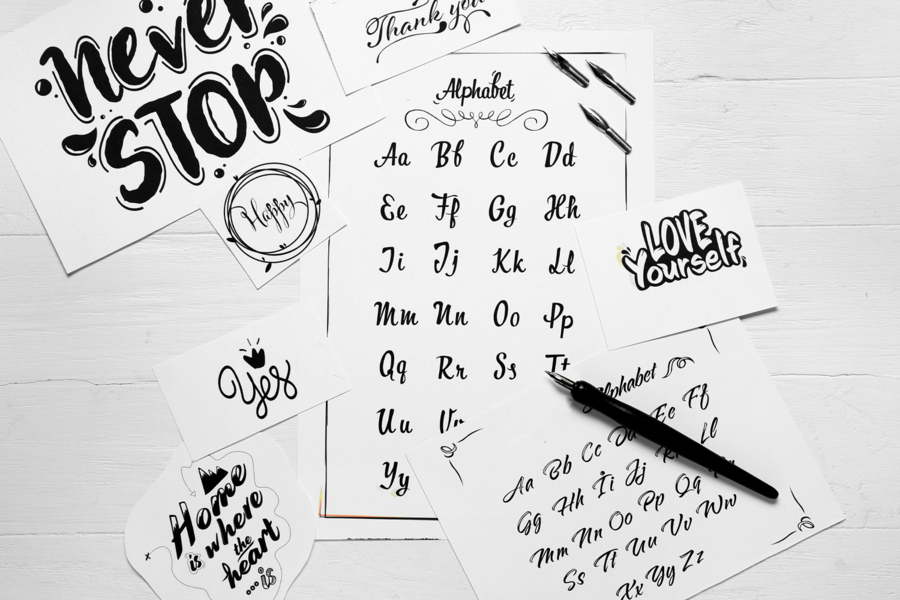 Never
STOP
Thank you
Happy
Alphabet
Aa Bb Cc Dd
Ee Ff Gg Hh
Ii Jj Kk Ll
Mm Nn Oo Pp
Qq Rr Ss Tt
Uu Vv
Yy
LOVE
Yourself
Yes
Home
is where
the
heart
...is
Alphabet
Aa Bb Cc Dd Ee Ff
Gg Hh Ii Jj Kk Ll
Mm Nn Oo Pp Qq
Ss Tt Uu Vv Ww
Xx Yy Zz